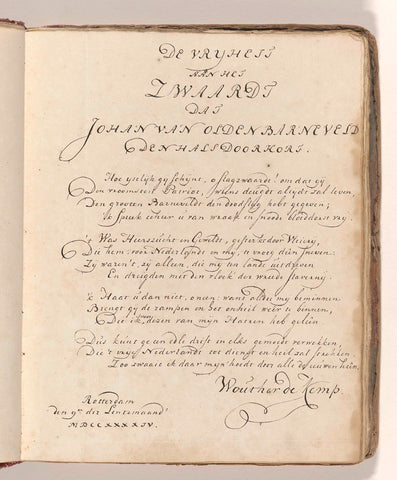 DE VRYHEIT
AAN HET
ZWAARDT
DAT
JOHAN VAN OLDENBARNEVELD
DEN HALS DOORKORF.
Hoe yselyk gy schynt, o slagzwaardt! omdat gy
Den vroomsten Patriot, wiens deugdt altydt zal leven,
Den grooten Barneveldt den doodtslag hebt gegeven;
Ik spreek u van wraak en snode bloeddorst vry.
't Was Heerszucht en Gewelt, gesterkt door
Die hem, voor Nederlandt en my, te vroeg dien sneven:
Zy waren't, zy alleen, die my ten lande uitdreven
En dreigden met den vloek der wreede slaverny.
'k Haat u dan niet, o neen: want al die my beminnen
Brengt gy de rampen en het onheil weer te binnen,
Die ik, om dezen van myn Haatren heb geleên
Dus kunt ge een edle drift in elks gemoedt verwekken,
Die 't vrye Nederlandt tot dienst en heil zal strekken.
Zoo zwaaie ik daar myn' hoedt door alle de eeuwen heen.
Wouther de Kemp.
Rotterdam
den 9en der Lentemaandt
MDCCXXXXIV.